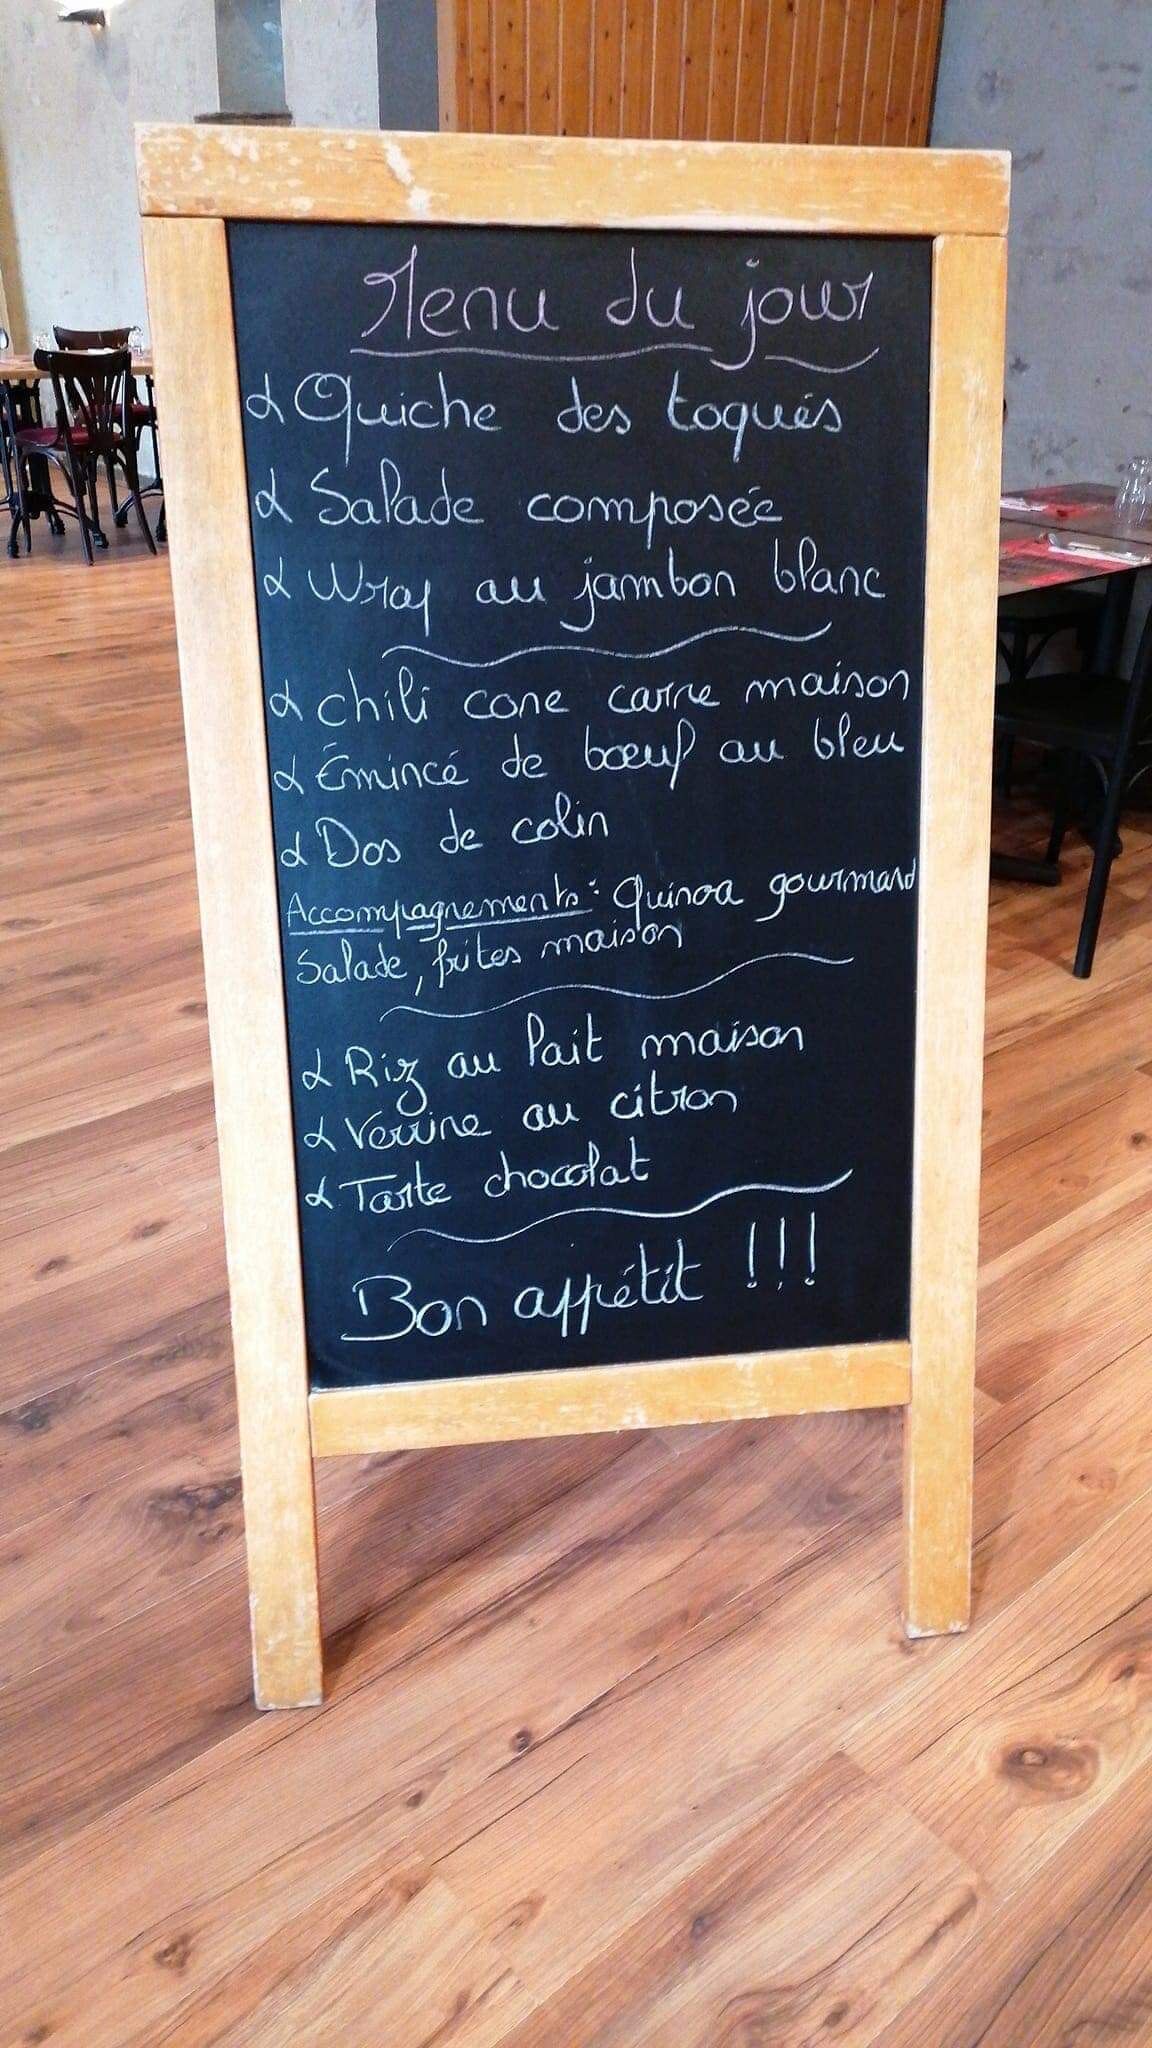 Menu du jour
α Quiche des toqués
α Salade composée
α Wrap au jambon blanc
α chili cone carne maison
α Émincé de bœuf au bleu
α Dos de colin
Accompagnements : Quinoa gourmand
Salade, frites maison
α Riz au lait maison
α Verrine au citron
α Tarte chocolat
Bon appétit !!!